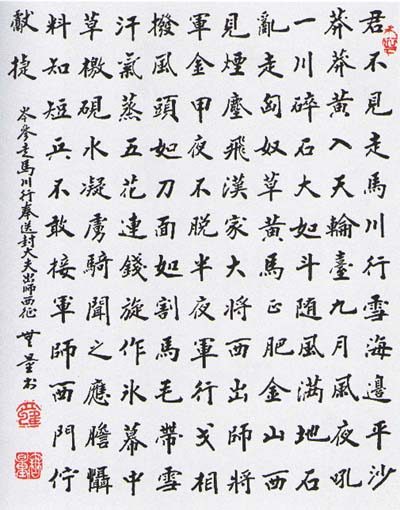 君不見走馬川行雪海邊平沙
莽莽黃入天輪臺九月風夜吼
一川碎石大如斗随風滿地石
亂走匈奴草黃馬正肥金山西
見煙塵飛漢家大將西出師將
軍金甲夜不脫半夜軍行戈相
撥風頭如刀面如割馬毛帶雪
汗氣蒸五花連錢旋作氷幕中
草檄硯水凝虜騎聞之應膽懾
料知短兵不敢接軍師西門佇
獻捷
岑參走馬川行奉送封大夫出師西征